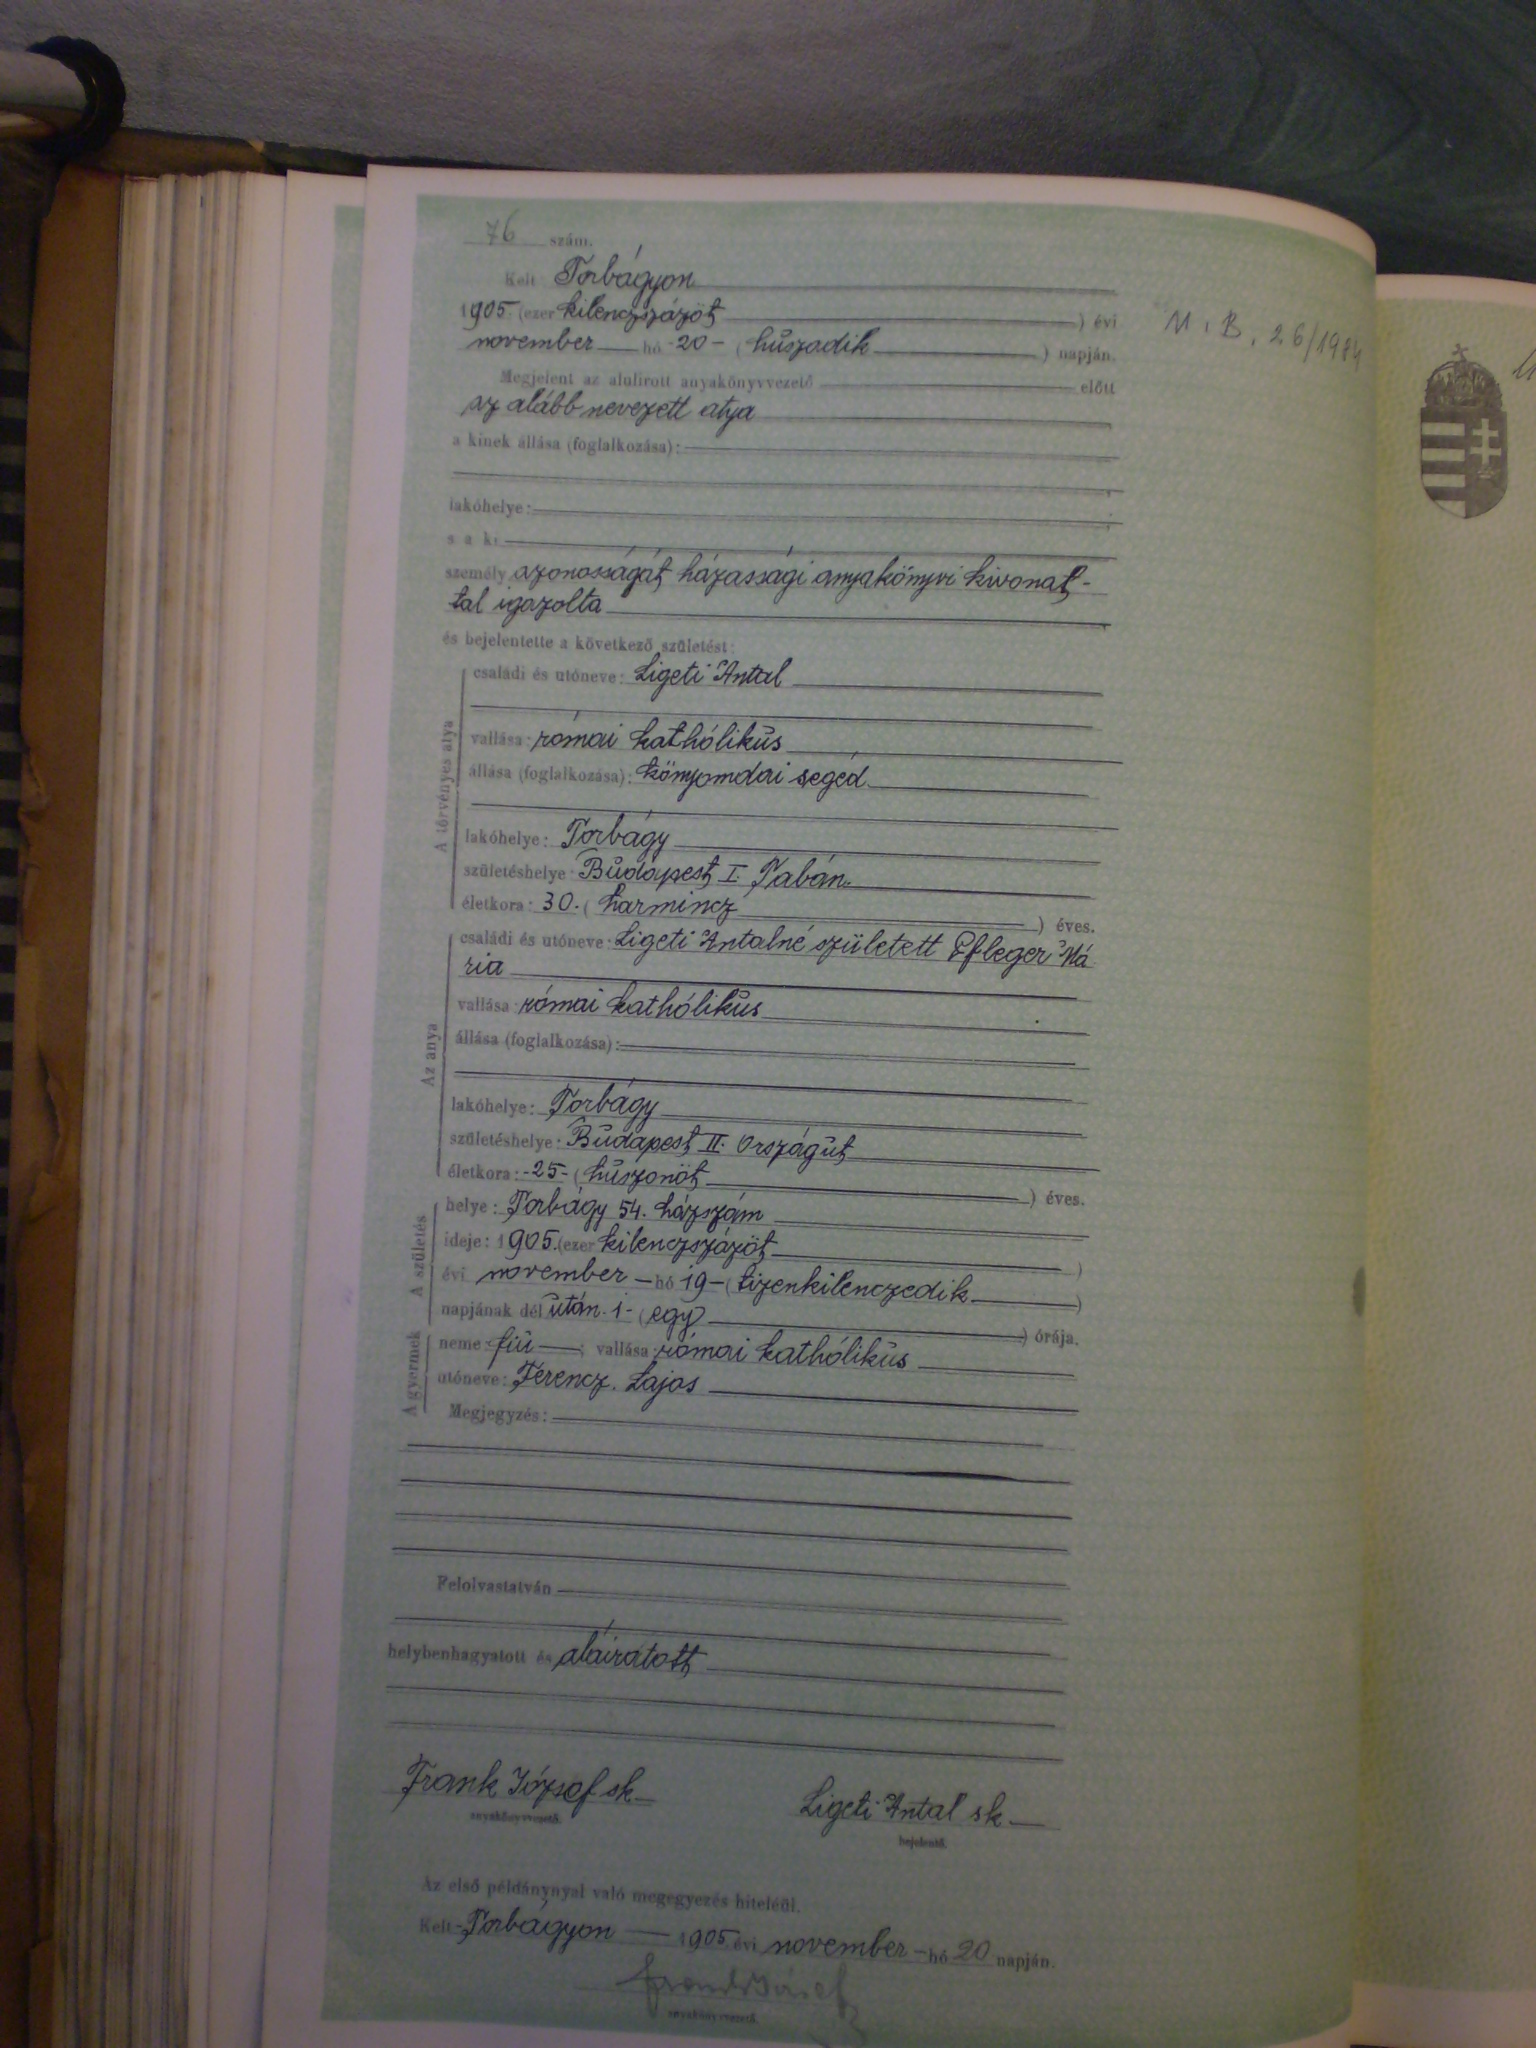 76 szám.
Kelt Torbágyon
1905. (ezer kilenczszázöt ) évi
november hó 20 - ( huszadik ) napján.
M. B. 26/1984
Megjelent az alulirott anyakönyvvezető előtt
az alább nevezett atya
a kinek állása (foglalkozása):
lakóhelye:
s a k
személy azonosságát házassági anyakönyvi kivonat-
tal igazolta
és bejelentette a következő születést:
A törvényes atya
családi és utóneve: Ligeti Antal
vallása: római kathólikus
állása (foglalkozása): könyomdai segéd
lakóhelye: Torbágy
születéshelye: Budapest I. Tabán.
életkora: 30. ( harmincz ) éves.
Az anya
családi és utóneve: Ligeti Antalné született Pfleger Má
ria
vallása: római kathólikus
állása (foglalkozása):
lakóhelye: Torbágy
születéshelye: Budapest II. Országut
életkora: -25- ( huszonöt ) éves.
A születés
helye: Torbágy 54. házszám
ideje: 1905. (ezer kilenczszázöt )
évi november - hó 19 - ( tizenkilenczedik )
napjának dél után. 1 - ( egy ) órája.
A gyermek
neme: fiu ; vallása: római kathólikus
utóneve: Ferencz. Lajos
Megjegyzés:
Felolvastatván
helybenhagyatott és aláiratott
Frank József sk
anyakönyvvezető.
Ligeti Antal sk
bejelentő.
Az első példánynyal való megegyezés hiteléül.
Kelt - Torbágyon 1905. évi november - hó 20 napján.
Frank József
anyakönyvvezető.